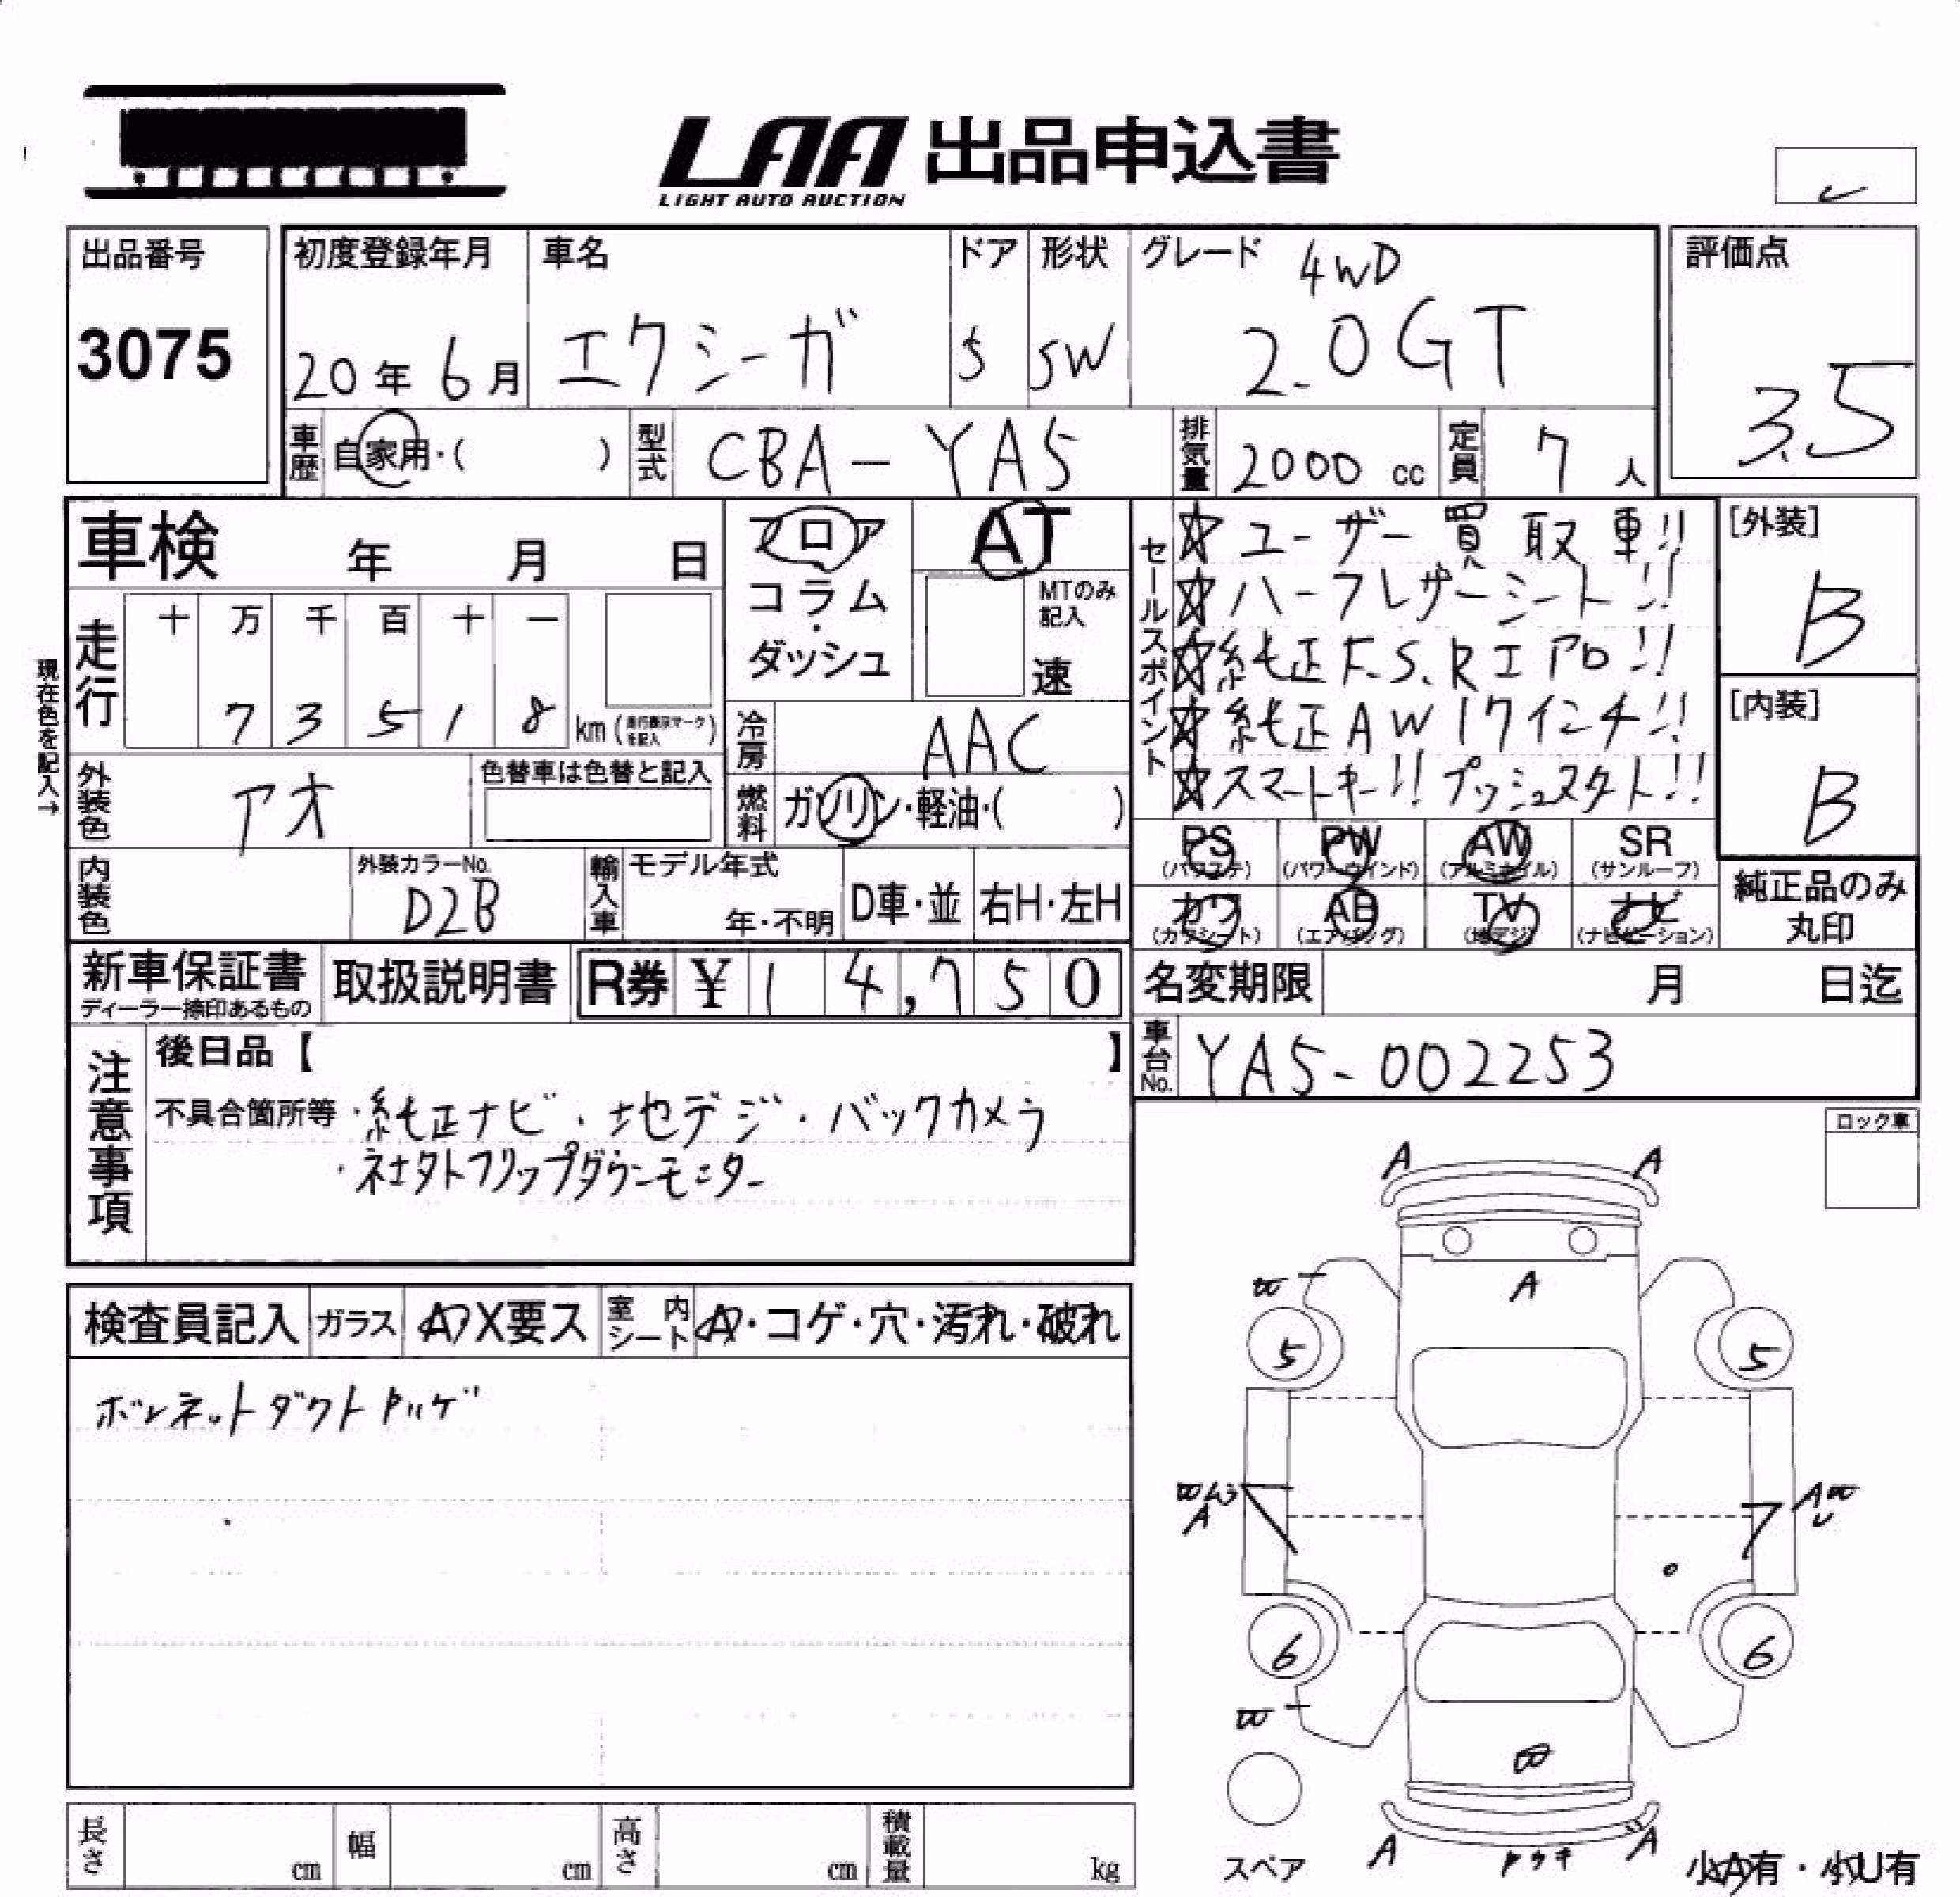 LAA 出品申込書
LIGHT AUTO AUCTION
出品番号
3075
初度登録年月
20年 6月
車名
エクシーガ
ドア
5
形状
SW
グレード
4WD
2.0GT
評価点
3.5
車歴
自家用・( )
型式
CBA-YA5
排気量
2000 cc
定員
7 人
車検 年 月 日
フロア
コラム
・
ダッシュ
AT
MTのみ
記入
速
セールスポイント
☆ユーザー買取車!!
☆ハーフレザーシート!!
☆純正F.S.Rエアロ!!
☆純正AW17インチ!!
☆スマートキー!! プッシュスタート!!
[外装]
B
[内装]
B
現在色を記入→
走行
十 万 千 百 十 一
7 3 5 1 8
km (走行表示マークを記入)
冷房
AAC
外装色
アオ
色替車は色替と記入
燃料
ガソリン・軽油・( )
PS (パワステ)
PW (パワーウインド)
AW (アルミホイル)
SR (サンルーフ)
カワ (カワシート)
AB (エアバッグ)
TV (地デジ)
ナビ (ナビゲーション)
純正品のみ
丸印
内装色
外装カラーNo.
D2B
輸入車
モデル年式
年・不明
D車・並
右H・左H
新車保証書
ディーラー捺印あるもの
取扱説明書
R券 ¥ 14,750
名変期限 月 日迄
車台No.
YA5-002253
注意事項
後日品【 】
不具合箇所等 ・純正ナビ・地デジ・バックカメラ
・社外フリップダウンモニター
ロック車
検査員記入
ガラス
A X要ス
室内シート
A・コゲ・穴・汚れ・破れ
ボンネットダクトトッゲ
A A
A
5 5
A
A
6 6
A A
スペア
小A有・小U有
長さ cm
幅 cm
高さ cm
積載量 kg